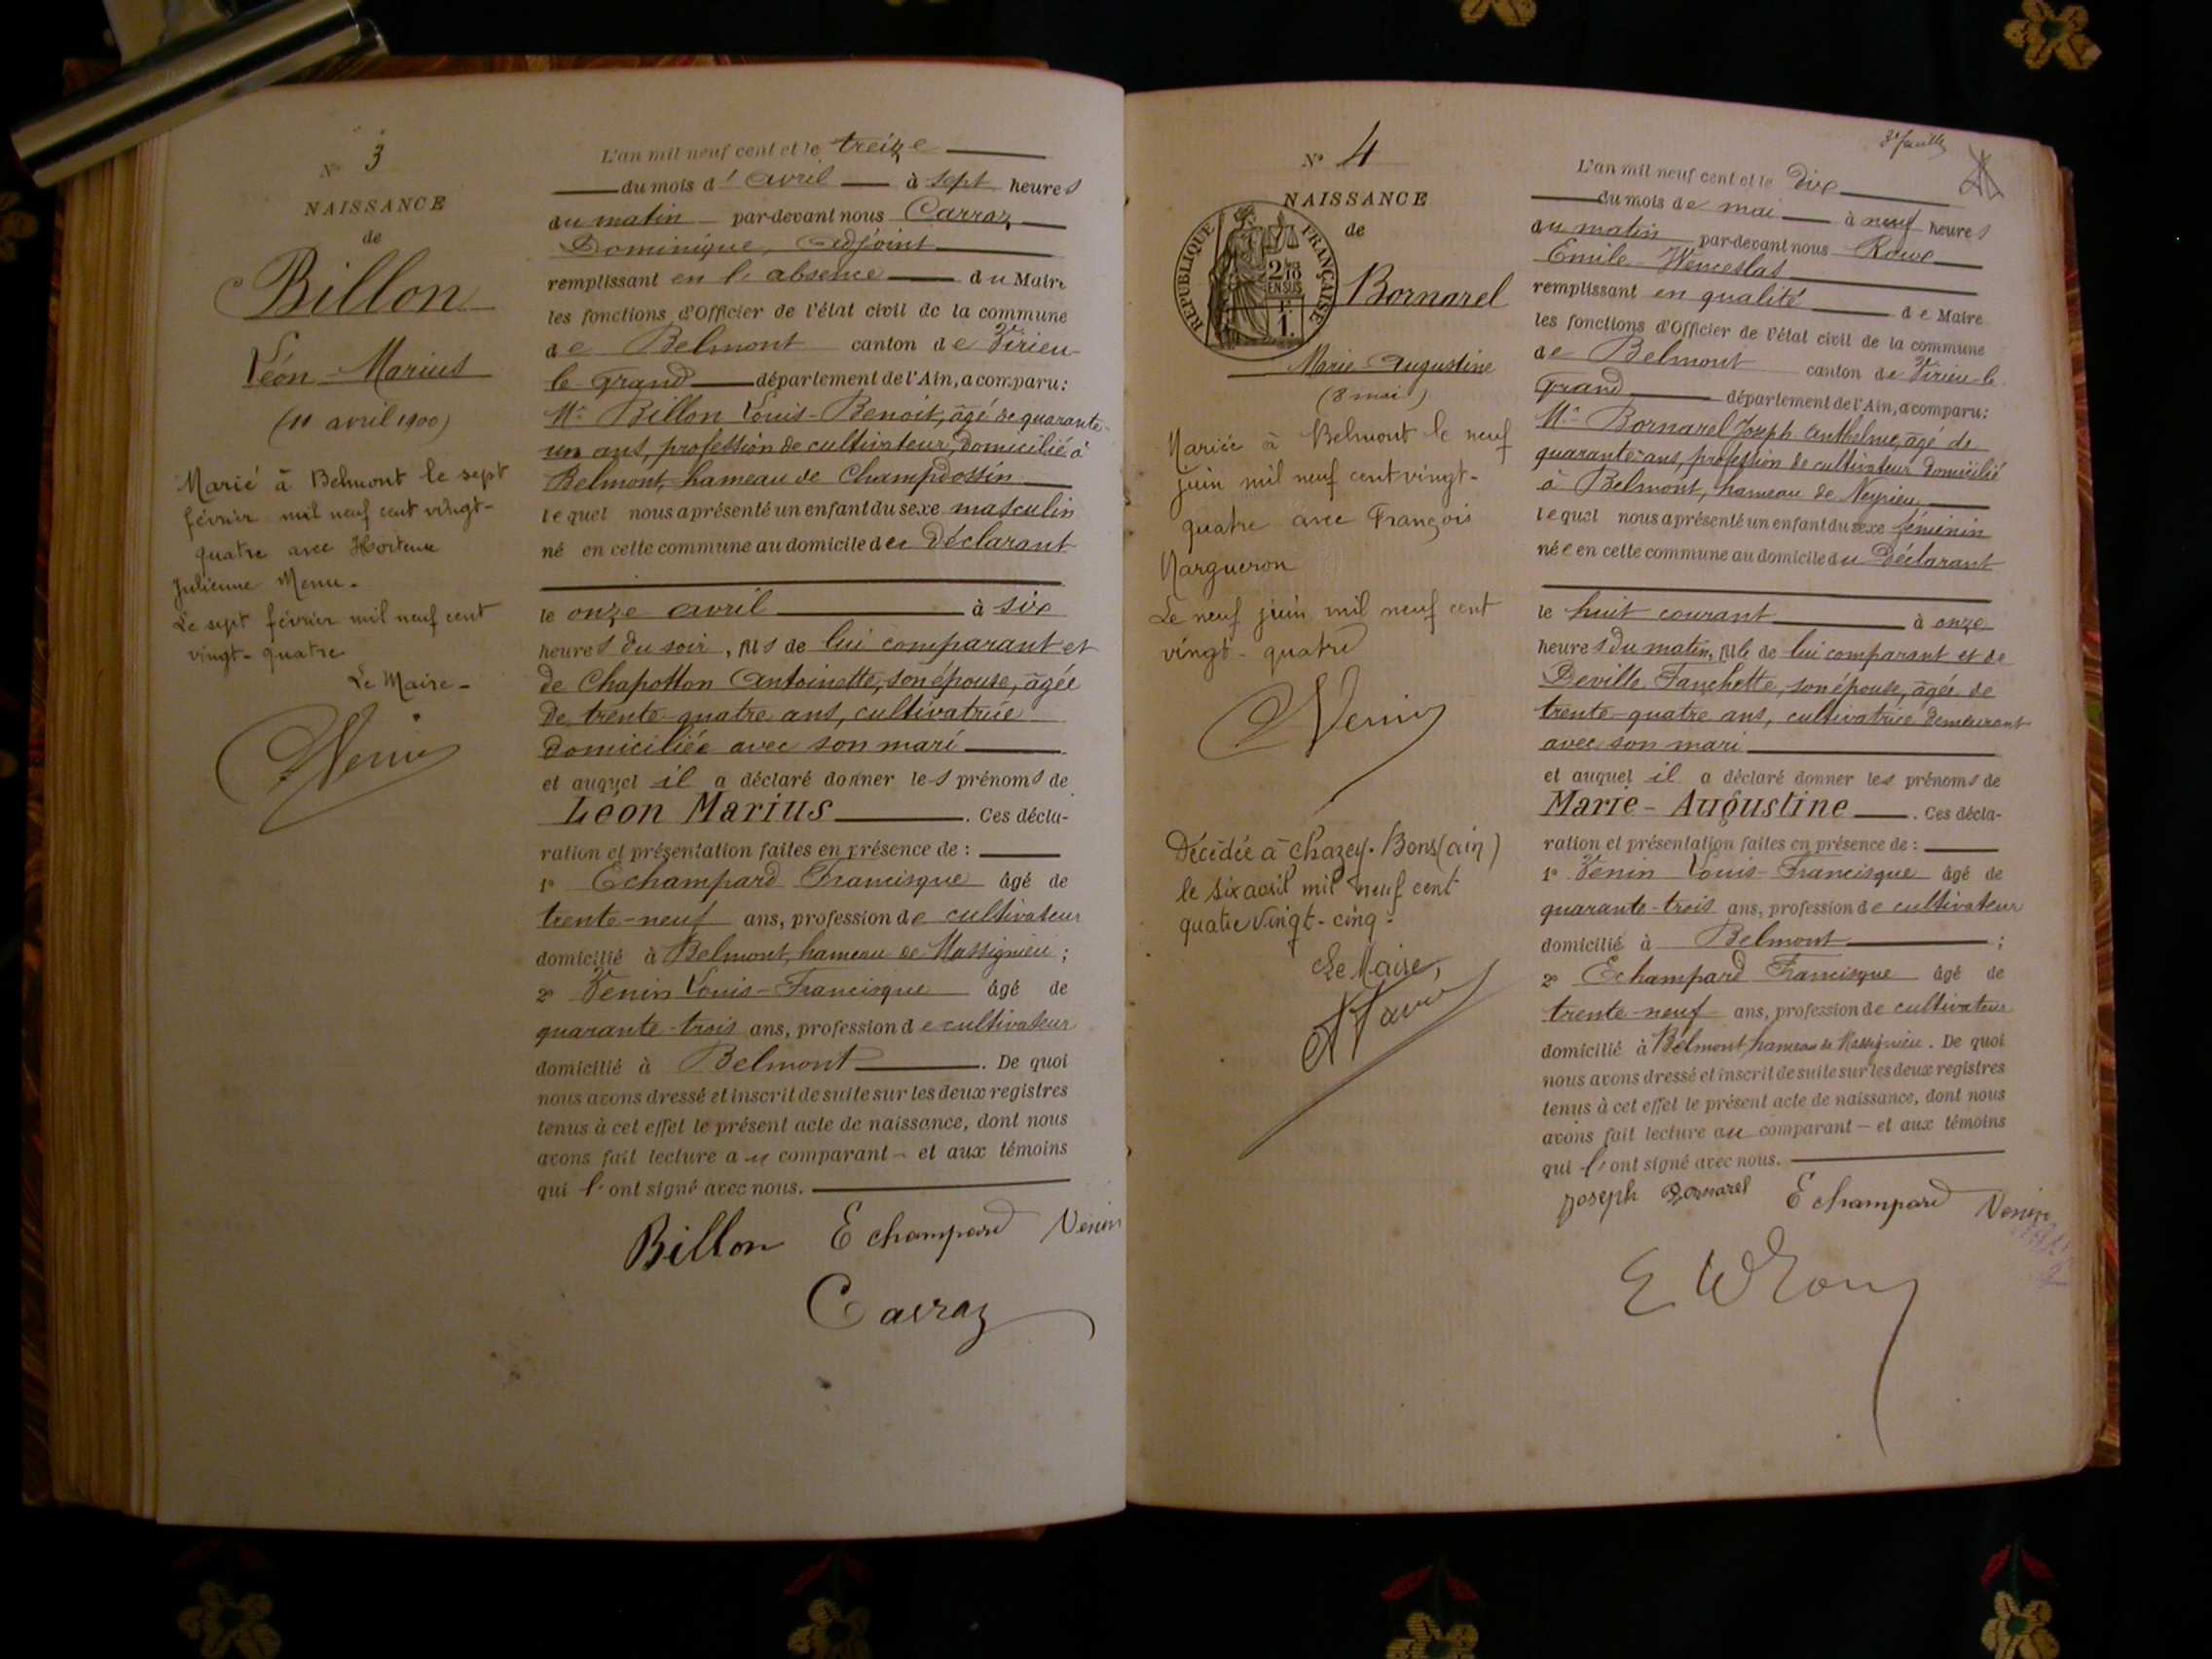 N° 3
NAISSANCE
de
Billon
Léon-Marius
(11 avril 1900)
Marié à Belmont le sept
février mil neuf cent vingt-
quatre avec Hortense
Julienne Menu.
Le sept février mil neuf cent
vingt-quatre
Le Maire-
L'an mil neuf cent et le treize
du mois d'avril à sept heures
du matin par-devant nous Carraz
Dominique, Adjoint
remplissant en l'absence du Maire
les fonctions d'Officier de l'état civil de la commune
de Belmont canton de Virieu-
le-Grand département de l'Ain, a comparu:
Mr Billon Louis-Benoit, âgé de quarante-
un ans, profession de cultivateur, domicilié à
Belmont, hameau de Champdossin
lequel nous a présenté un enfant du sexe masculin
né en cette commune au domicile du Déclarant
le onze avril à six
heures du soir, fils de lui comparant et
de Chapotton Antoinette, son épouse, âgée
de trente-quatre ans, cultivatrice
domiciliée avec son mari
et auquel il a déclaré donner les prénoms de
Léon Marius. Ces décla-
ration et présentation faites en présence de :
1° Echampard Francisque âgé de
trente-neuf ans, profession de cultivateur
domicilié à Belmont, hameau de Massignieu ;
2° Venin Louis-Francisque âgé de
quarante-trois ans, profession de cultivateur
domicilié à Belmont. De quoi
nous avons dressé et inscrit de suite sur les deux registres
tenus à cet effet le présent acte de naissance, dont nous
avons fait lecture au comparant - et aux témoins
qui l'ont signé avec nous.
Billon Echampard Venin
Carraz
3e feuille
N° 4
NAISSANCE
de
REPUBLIQUE FRANÇAISE
2/10 EN SUS
1F.
Bornarel
Marie Augustine
(8 mai)
Mariée à Belmont le neuf
juin mil neuf cent vingt-
quatre avec François
Margueron
Le neuf juin mil neuf cent
vingt-quatre
Décédée à Chazey-Bons (Ain)
le six avril mil neuf cent
quatre vingt-cinq.
Le Maire,
L'an mil neuf cent et le Dix
du mois de mai à neuf heures
du matin par-devant nous Roux
Emile-Wenceslas
remplissant en qualité de Maire
les fonctions d'Officier de l'état civil de la commune
de Belmont canton de Virieu-le-
Grand département de l'Ain, a comparu:
Mr Bornarel Joseph Anthelme, âgé de
quarante ans, profession de cultivateur domicilié
à Belmont, hameau de Neyrieu
lequel nous a présenté un enfant du sexe féminin
née en cette commune au domicile du Déclarant
le huit courant à onze
heures du matin, fille de lui comparant et de
Deville Fanchette, son épouse, âgée de
trente-quatre ans, cultivatrice demeurant
avec son mari
et auquel il a déclaré donner les prénoms de
Marie-Augustine. Ces décla-
ration et présentation faites en présence de :
1° Venin Louis-Francisque âgé de
quarante-trois ans, profession de cultivateur
domicilié à Belmont ;
2° Echampard Francisque âgé de
trente-neuf ans, profession de cultivateur
domicilié à Belmont, hameau de Massignieu. De quoi
nous avons dressé et inscrit de suite sur les deux registres
tenus à cet effet le présent acte de naissance, dont nous
avons fait lecture au comparant - et aux témoins
qui l'ont signé avec nous.
Joseph Bornarel Echampard Venin
E W Roux